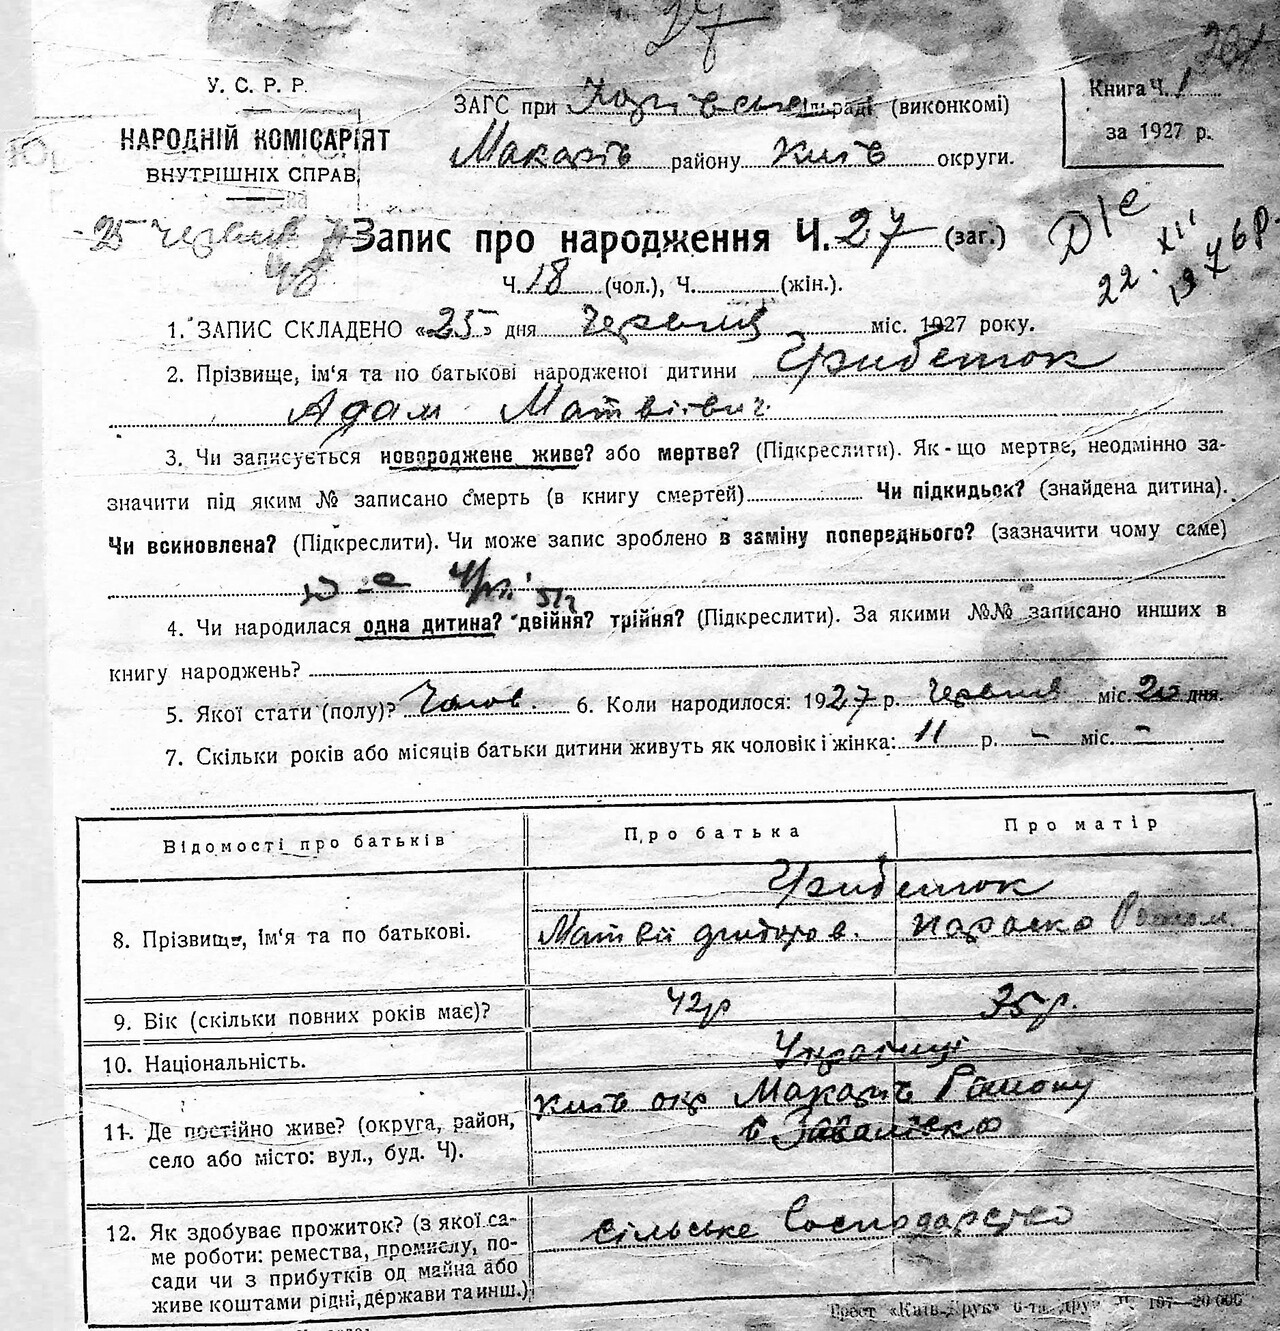 27
201
У. С. Р. Р.
НАРОДНІЙ КОМІСАРІЯТ
ВНУТРІШНІХ СПРАВ,
ЗАГС при раді (виконкомі)
Макарів району Київ округи.
Книга Ч. 1
за 1927 р.
25 червня
Запис про народження Ч. 27 (заг.)
22. XII 1976р
Ч. 18 (чол.), Ч. (жін.).
1. ЗАПИС СКЛАДЕНО «25» дня Червня міс. 1927 року.
2. Прізвище, ім'я та по батькові народженої дитини Грибенюк
Адам Матвіївич.
3. Чи записується новороджене живе? або мертве? (Підкреслити). Як-що мертве, неодмінно за-
значити під яким № записано смерть (в книгу смертей) Чи підкидьок? (знайдена дитина).
Чи всиновлена? (Підкреслити). Чи може запис зроблено в заміну попереднього? (зазначити чому саме)
4. Чи народилася одна дитина? двійня? трійня? (Підкреслити). За якими №№ записано инших в
книгу народжень?
5. Якої стати (полу)? Чолов. 6. Коли народилося: 1927 р. червня міс. дня.
7. Скільки років або місяців батьки дитини живуть як чоловік і жінка: 11 р. - міс. -
Відомості про батьків
Про батька
Про матір
8. Прізвище, ім'я та по батькові.
Грибенюк
Матвій Григоров.
Параска
9. Вік (скільки повних років має)?
42р
35р.
10. Національність.
Українці
11. Де постійно живе? (округа, район,
село або місто: вул., буд. Ч).
Київ окр Макарів Району
с Завалівка
12. Як здобуває прожиток? (з якої са-
ме роботи: ремества, промислу, по-
сади чи з прибутків од майна або
живе коштами рідні, держави та инш.)
сільське господарство
Трест «Київ-Друк» 6-та друк. 167—20000